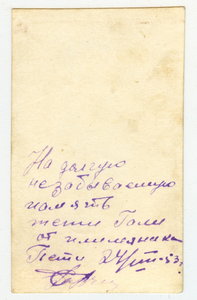 На долгую
незабываемую
память
тети Гали
от племянника
Пети 24/VIII-53г.